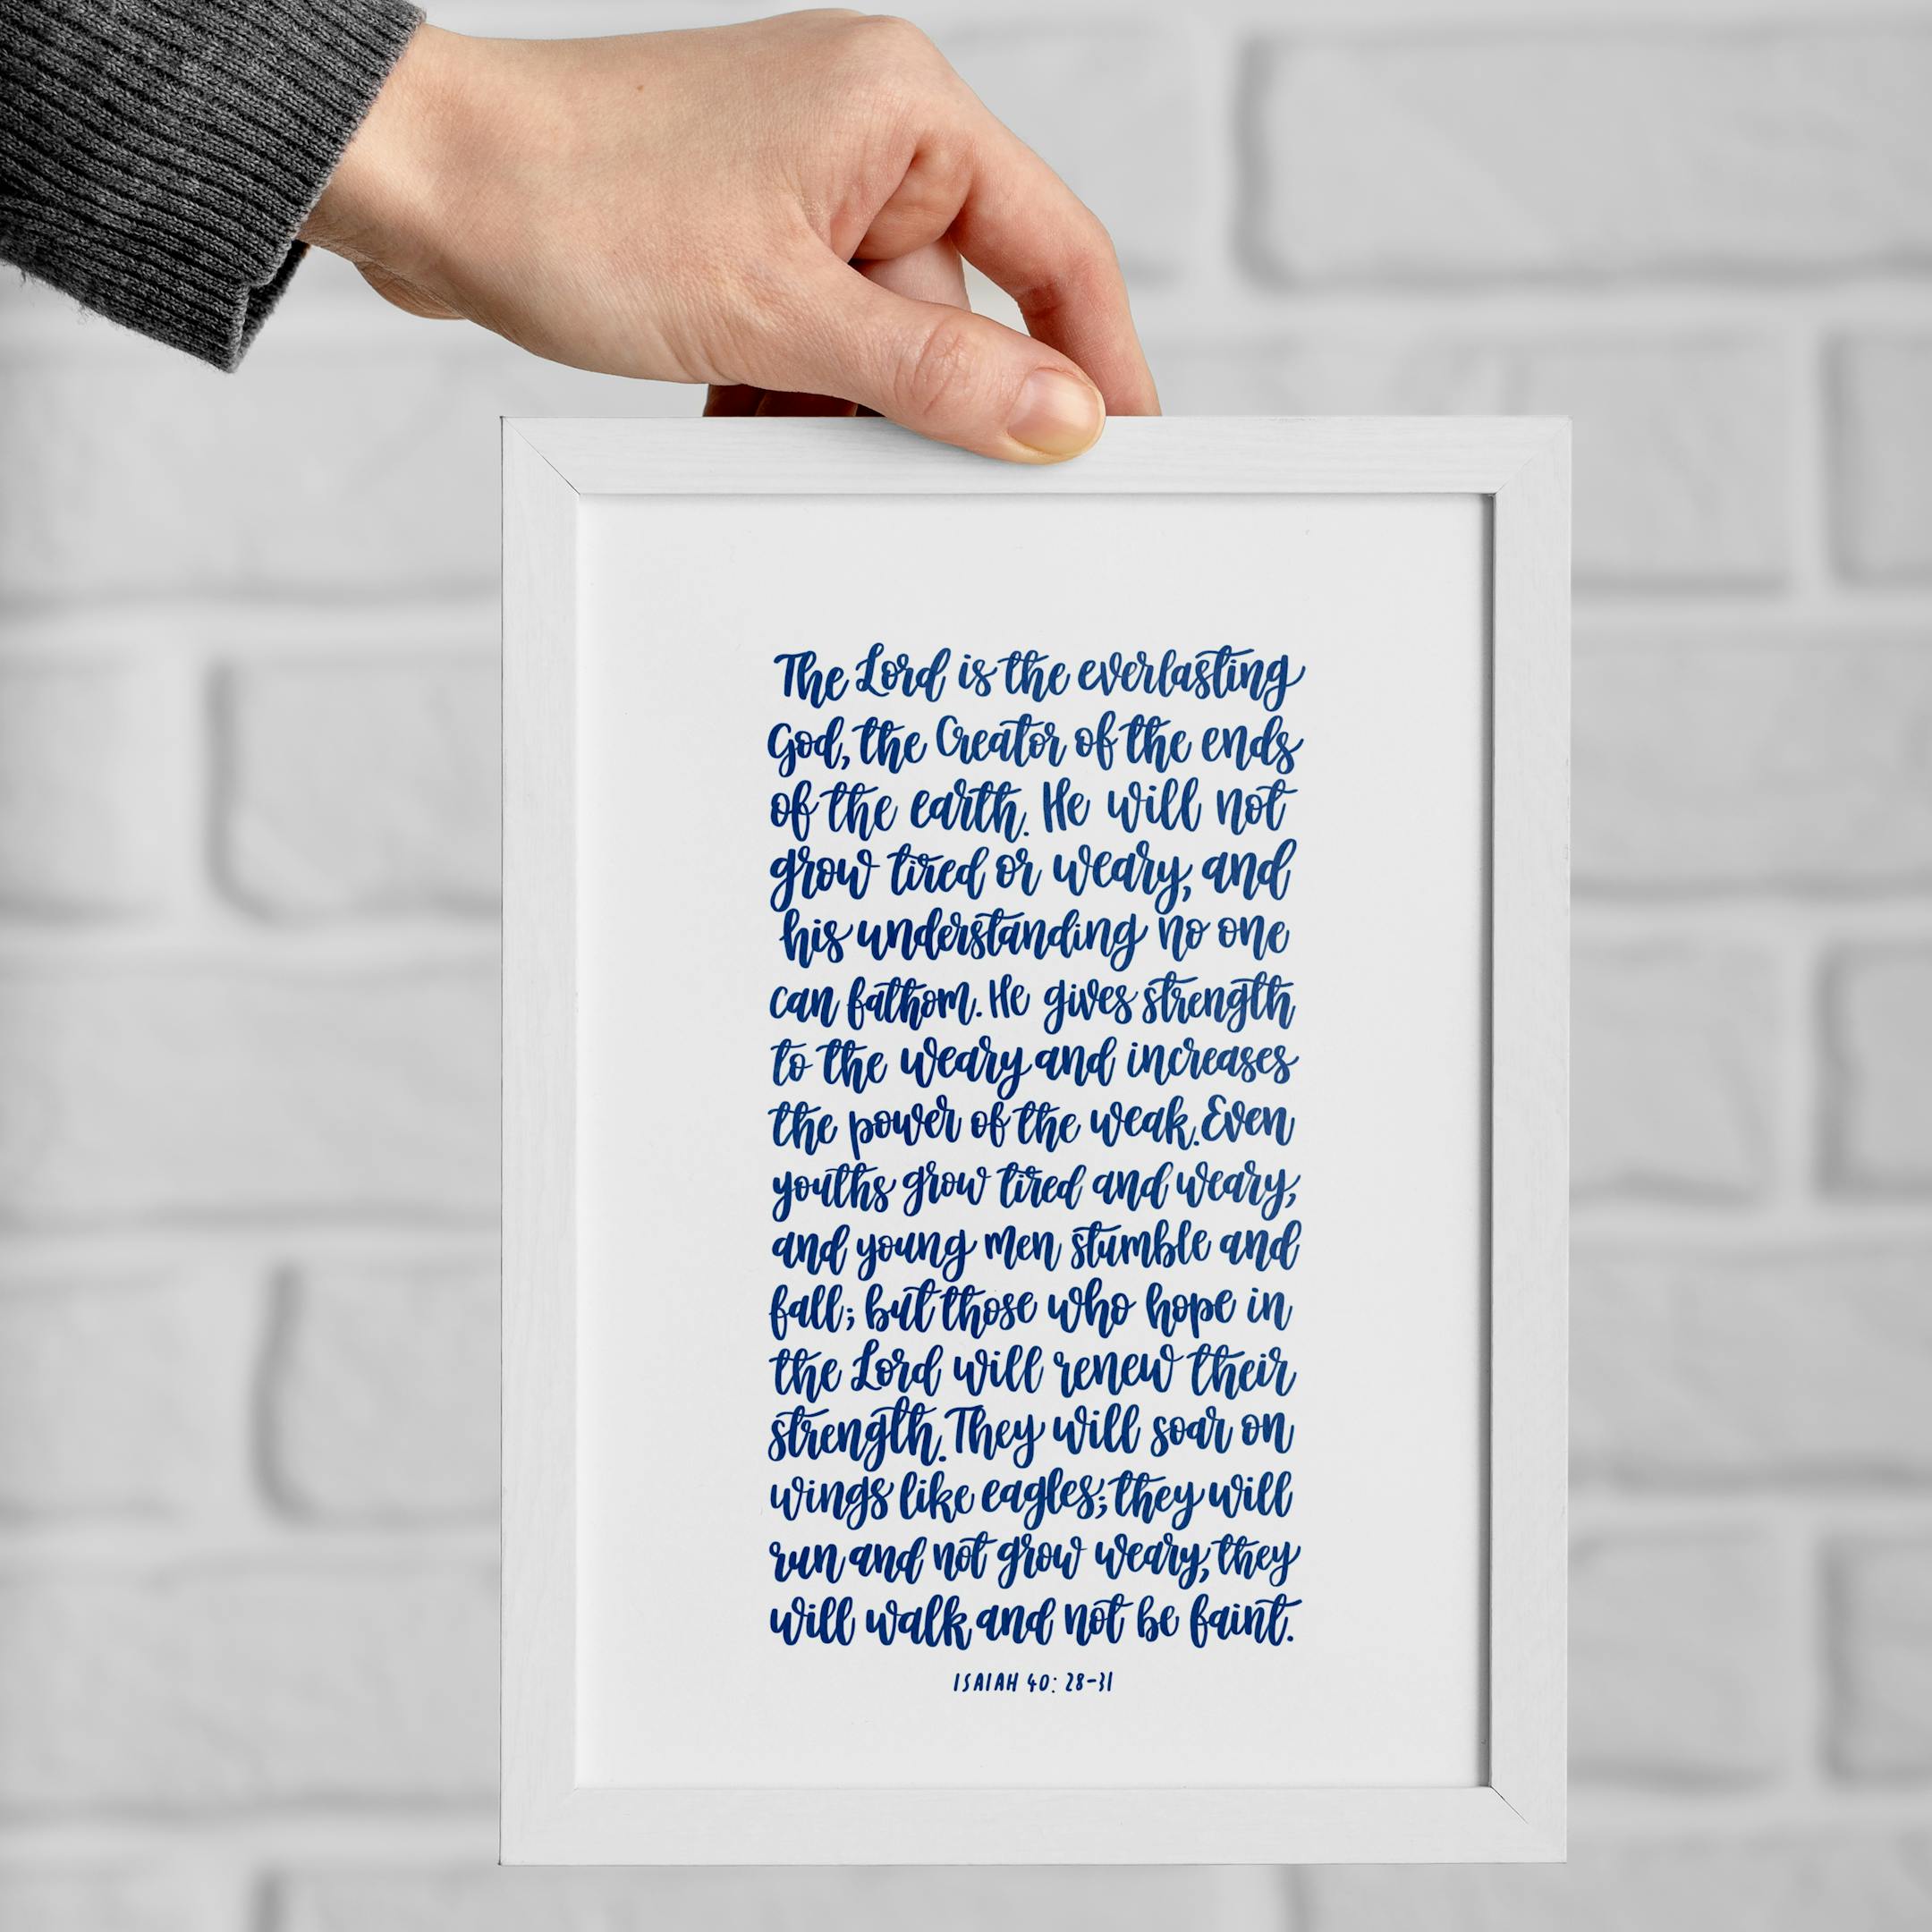 The Lord is the everlasting
God, the Creator of the ends
of the earth. He will not
grow tired or weary, and
his understanding no one
can fathom. He gives strength
to the weary and increases
the power of the weak. Even
youths grow tired and weary,
and young men stumble and
fall; but those who hope in
the Lord will renew their
strength. They will soar on
wings like eagles; they will
run and not grow weary, they
will walk and not be faint.
ISAIAH 40: 28-31